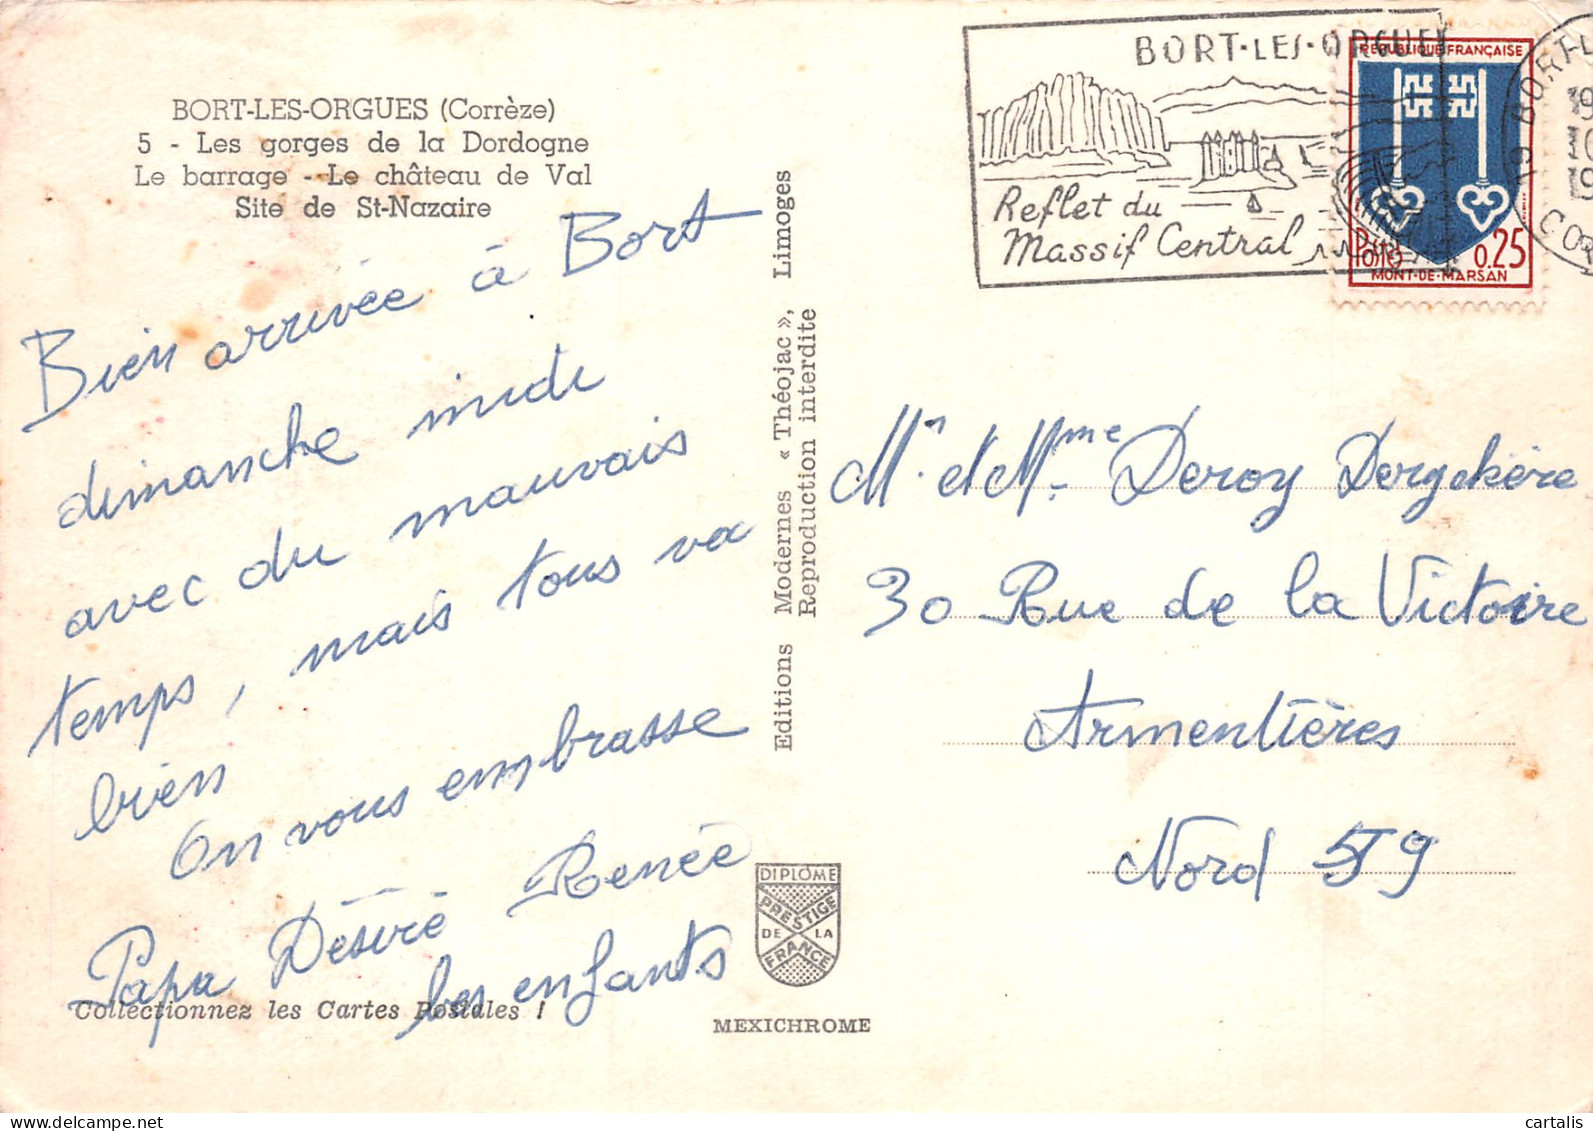 BORT-LES-ORGUES (Corrèze)
5 - Les gorges de la Dordogne
Le barrage - Le château de Val
Site de St-Nazaire
Bien arrivée à Bort
dimanche midi
avec du mauvais
temps, mais tous va
bien
On vous embrasse
Papa Désiré Renée
les enfants
Collectionnez les Cartes Postales !
Editions Modernes « Théojac », Limoges
Reproduction interdite
DIPLÔME
PRESTIGE
DE LA
FRANCE
MEXICHROME
BORT-LES-ORGUES
Reflet du
Massif Central
REPUBLIQUE FRANÇAISE
Postes 0,25
MONT-DE-MARSAN
19 BORT-L
COR
Mr et Mme Deroy Dergckère
30 Rue de la Victoire
Armentières
Nord 59
cartalis